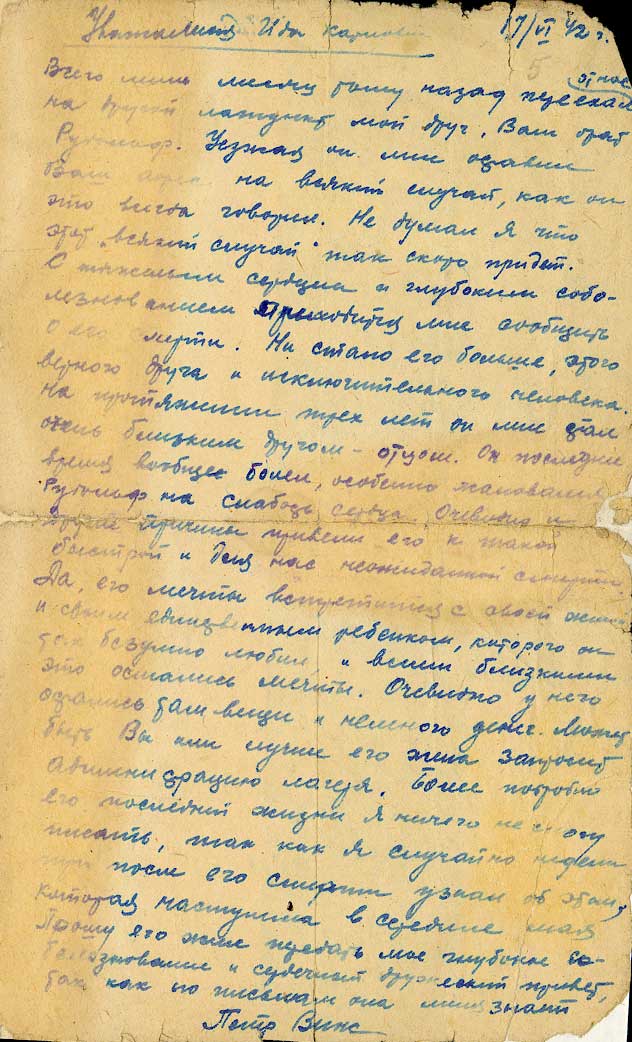 Уважаемая Ида Карловна 17/VI 42 г.
5
Всего лишь месяц тому назад переехал от нас
на другой лагпункт мой друг, Ваш брат
Рудольф. Уезжая он мне оставил
Ваш адрес на всякий случай, как он
это всегда говорил. Не думал я что
этот "всякий случай" так скоро придет.
С тяжелым сердцем и глубоким собо-
лезнованием приходится мне сообщить
о его смерти. Не стало его больше, этого
верного друга и исключительного человека.
На протяжении трех лет он мне стал
очень близким другом - отцом. Он последнее
время вообще болел, особенно жаловался
Рудольф на слабость сердца. Очевидно и
другие причины привели его к такой
быстрой и для нас неожиданной смерти.
Да, его мечты встретится с своей женой
и своим единственным ребенком, которого он
так безумно любил, и всеми близкими
это остались мечты. Очевидно у него
остались там вещи и немного денег. Может
быть Вы или лучше его жена запросит
администрацию лагеря. Более подробно
его последней жизни я ничего не смогу
писать, так как я случайно недели
три после его смерти узнал об этом,
которая наступила в середине мая
Прошу его жене передать мое глубокое со-
болезнование и сердечный дружеский привет,
так как по письмам она меня знает
Петр Винс